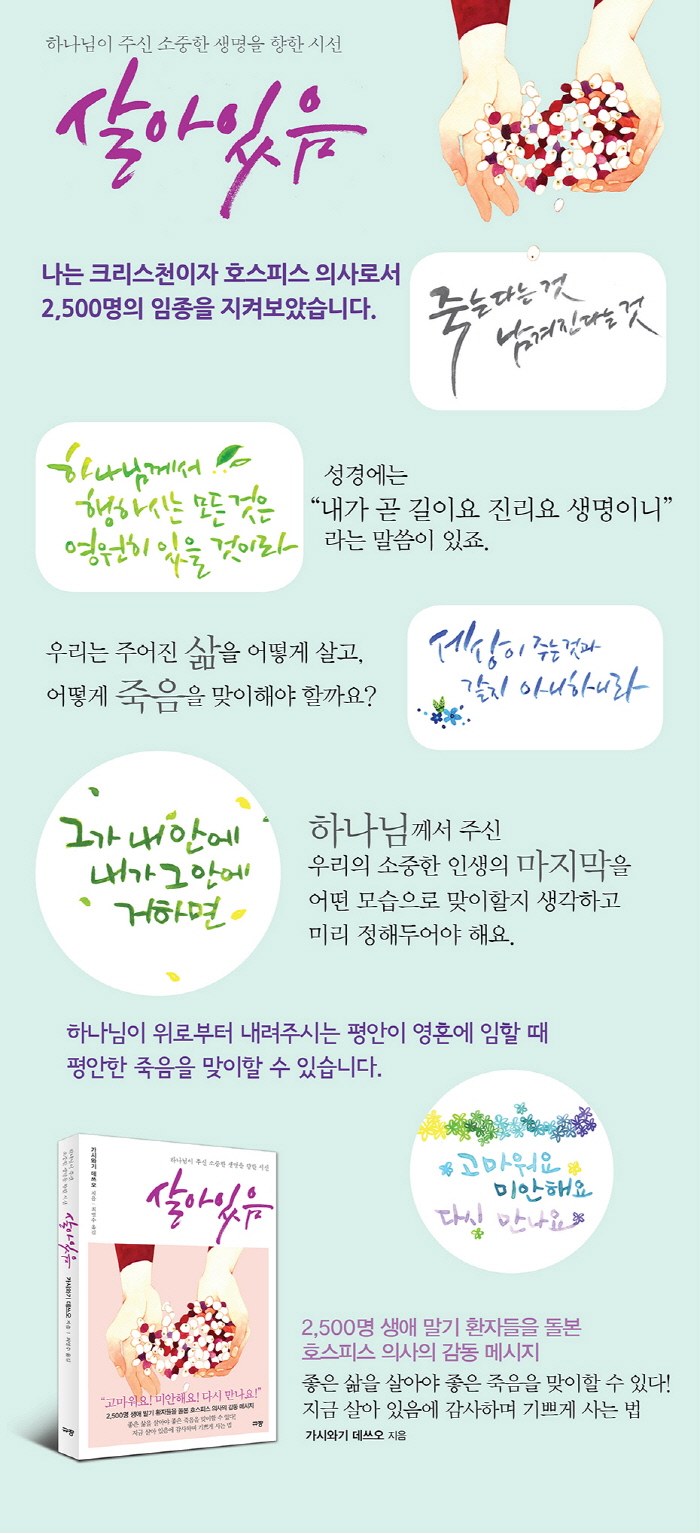 하나님이 주신 소중한 생명을 향한 시선
살아있음
나는 크리스천이자 호스피스 의사로서
2,500명의 임종을 지켜보았습니다.
죽는다는 것
남겨진다는 것
하나님께서
행하시는 모든 것은
영원히 있을 것이라
성경에는
“내가 곧 길이요 진리요 생명이니”
라는 말씀이 있죠.
우리는 주어진 삶을 어떻게 살고,
어떻게 죽음을 맞이해야 할까요?
세상이 주는 것과
같지 아니하니라
그가 내 안에
내가 그 안에
거하면
하나님께서 주신
우리의 소중한 인생의 마지막을
어떤 모습으로 맞이할지 생각하고
미리 정해두어야 해요.
하나님이 위로부터 내려주시는 평안이 영혼에 임할 때
평안한 죽음을 맞이할 수 있습니다.
고마워요
미안해요
다시 만나요
하나님이 주신 소중한 생명을 향한 시선
살아있음
가시와기 데쓰오 지음
최영수 옮김
하나님이 주신
소중한 생명을 향한 시선
살아있음
가시와기 데쓰오 지음
최영수 옮김
“고마워요! 미안해요! 다시 만나요!”
2,500명 생애 말기 환자들을 돌본 호스피스 의사의 감동 메시지
좋은 삶을 살아야 좋은 죽음을 맞이할 수 있다!
지금 살아 있음에 감사하며 기쁘게 사는 법
규장
규장
2,500명 생애 말기 환자들을 돌본
호스피스 의사의 감동 메시지
좋은 삶을 살아야 좋은 죽음을 맞이할 수 있다!
지금 살아 있음에 감사하며 기쁘게 사는 법
가시와기 데쓰오 지음